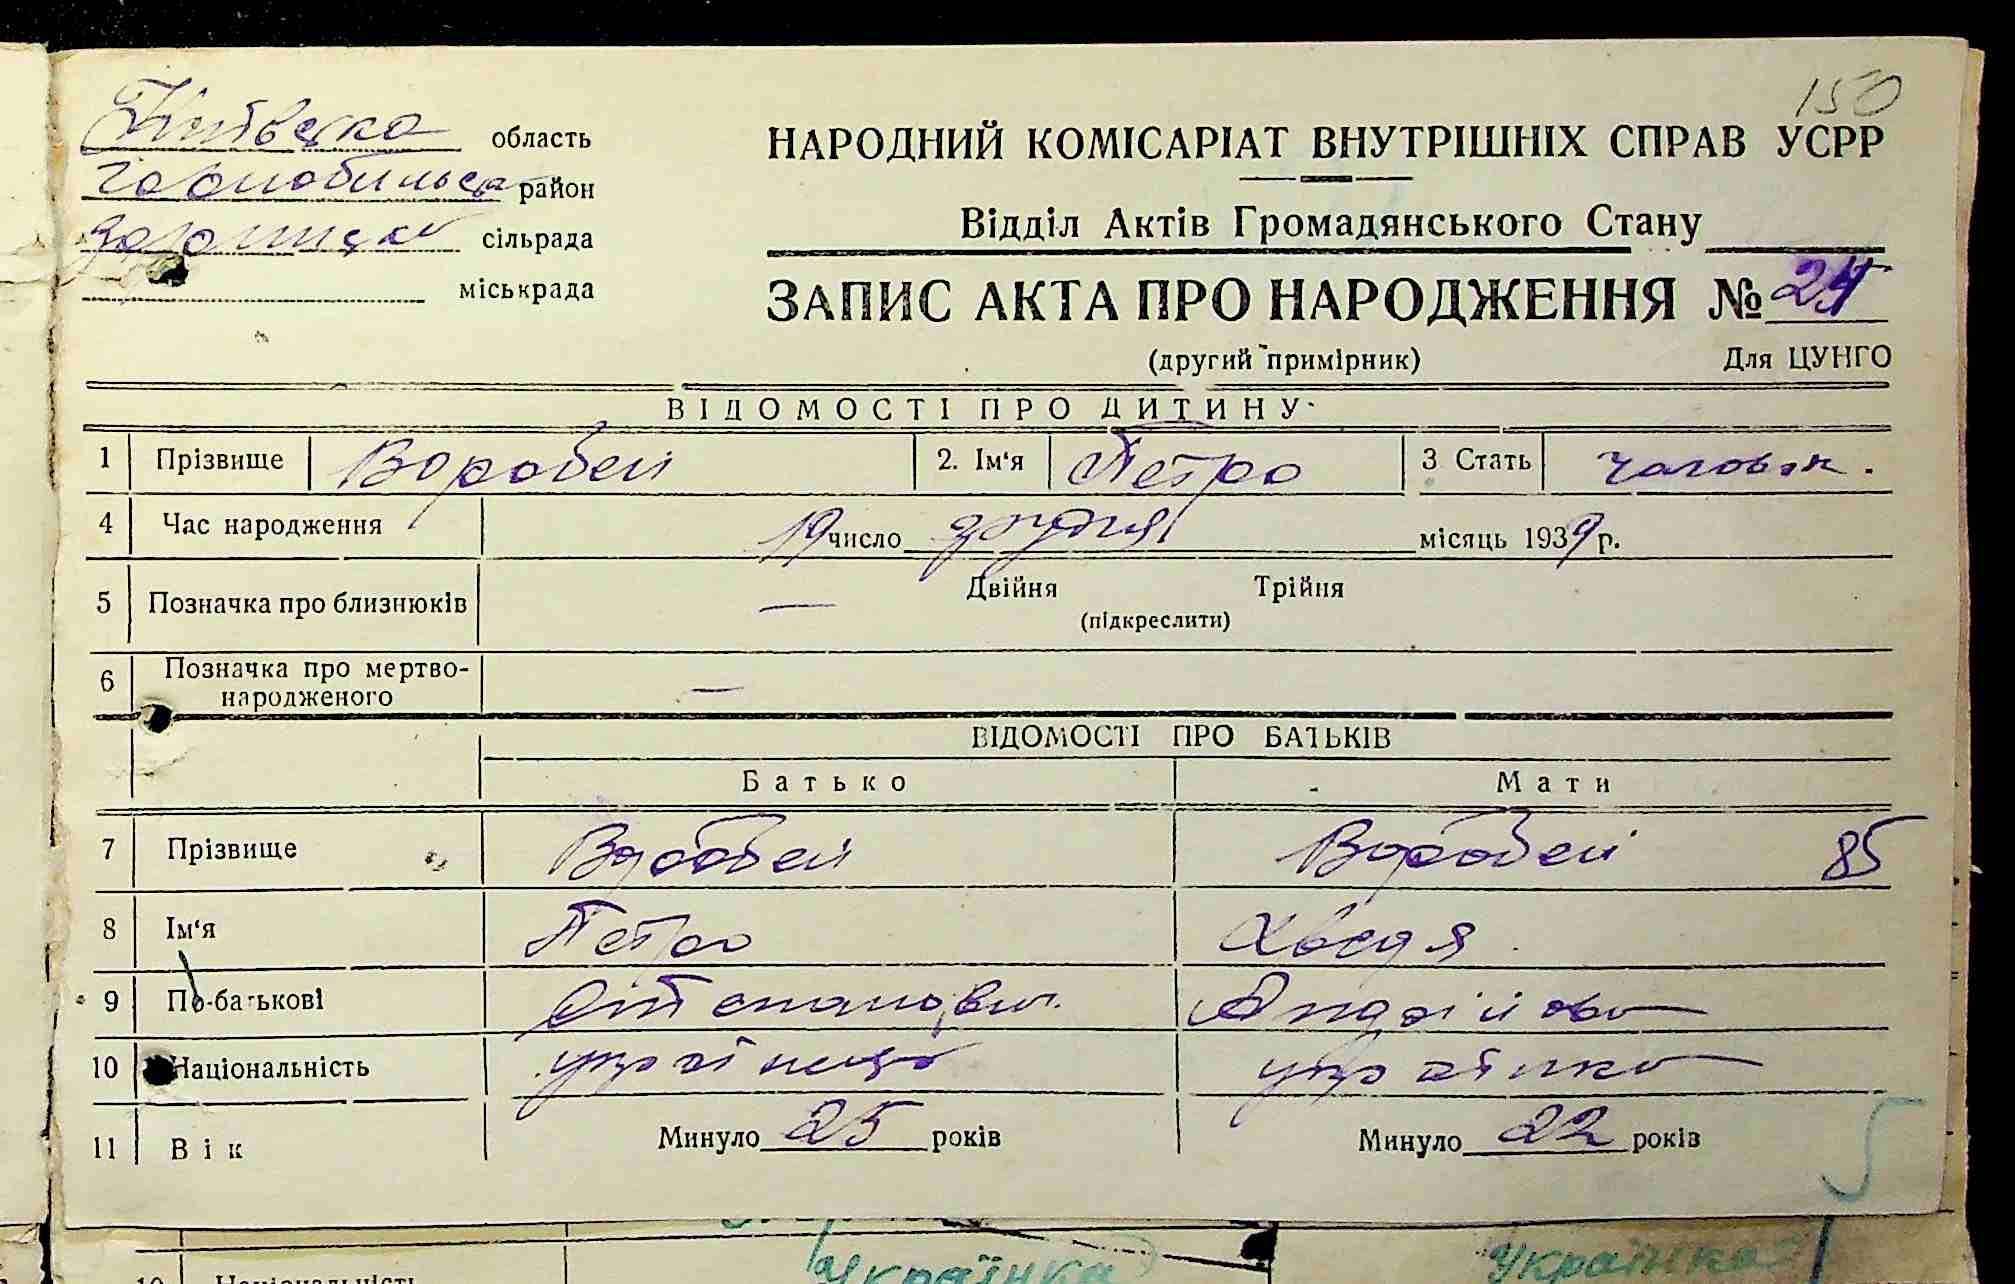 150
Київська область
Чорнобильськ район
Зоринська сільрада
міськрада
НАРОДНИЙ КОМІСАРІАТ ВНУТРІШНІХ СПРАВ УСРР
Відділ Актів Громадянського Стану
ЗАПИС АКТА ПРО НАРОДЖЕННЯ №
(другий примірник) Для ЦУНГО
ВІДОМОСТІ ПРО ДИТИНУ
1 Прізвище Воробей 2. Ім'я Петро 3 Стать чоловік.
4 Час народження 19 число грудня місяць 1939 р.
5 Позначка про близнюків — Двійня Трійня
(підкреслити)
6 Позначка про мертво-
народженого —
ВІДОМОСТІ ПРО БАТЬКІВ
Батько Мати
7 Прізвище Воробей Воробей 85
8 Ім'я Петро Хведя
9 По-батькові Степанович Андріївна
10 Національність українець українка
11 Вік Минуло 25 років Минуло 22 років
українка Українка
10 Національність